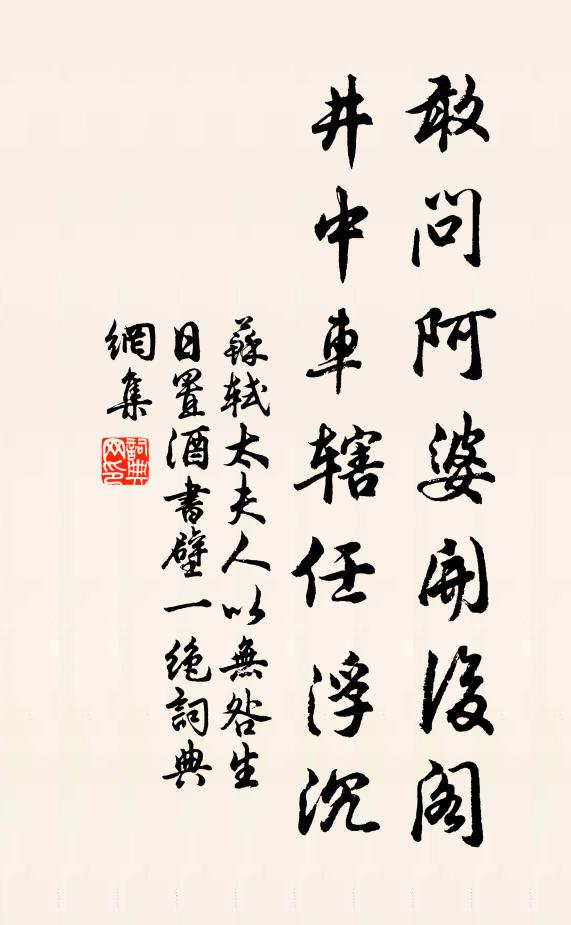 敢問阿婆開後閣
井中車轄任浮沉
蘇軾太夫人以無咎生
日置酒書壁一絶詞典
網集
詞典
网印